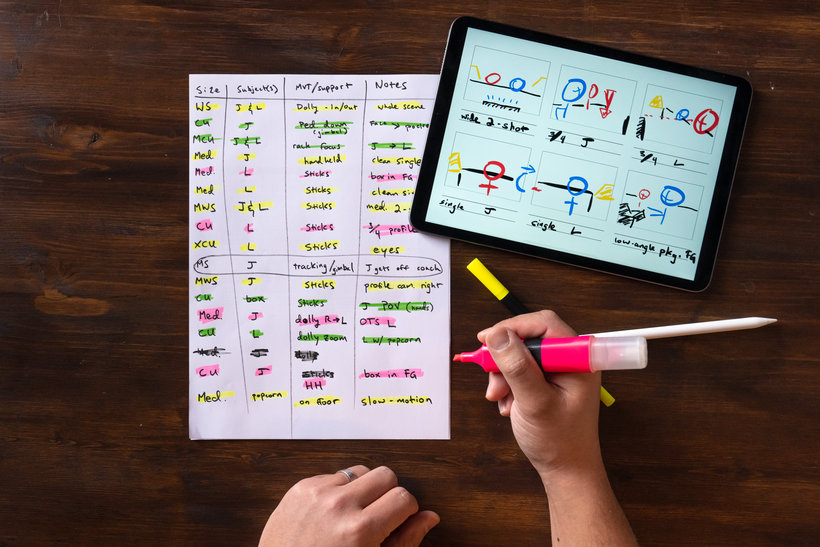 Size Subject(s) MVT/support Notes
WS J & L Dolly - In/out whole scene
CU J Ped down (gimbal) Face →
MCU J & L rack focus J → L
Med. J handheld clean single
Med. L Sticks box in FG
Med L Sticks clean
MWS J & L Sticks med. 2-
CU L Sticks 3/4 profile
XCU L Sticks eyes
MS J tracking/gimbal J gets off couch
MWS J Sticks profile cam right
CU box Sticks J POV (hands)
Med J dolly R→L OTS L
CU L dolly zoom L w/ popcorn
Med. J dolly
CU J Sticks HH box in FG
Med. popcorn on floor slow-motion
wide 2-shot
3/4 J
3/4 L
single J
single L
low-angle pkg. FG